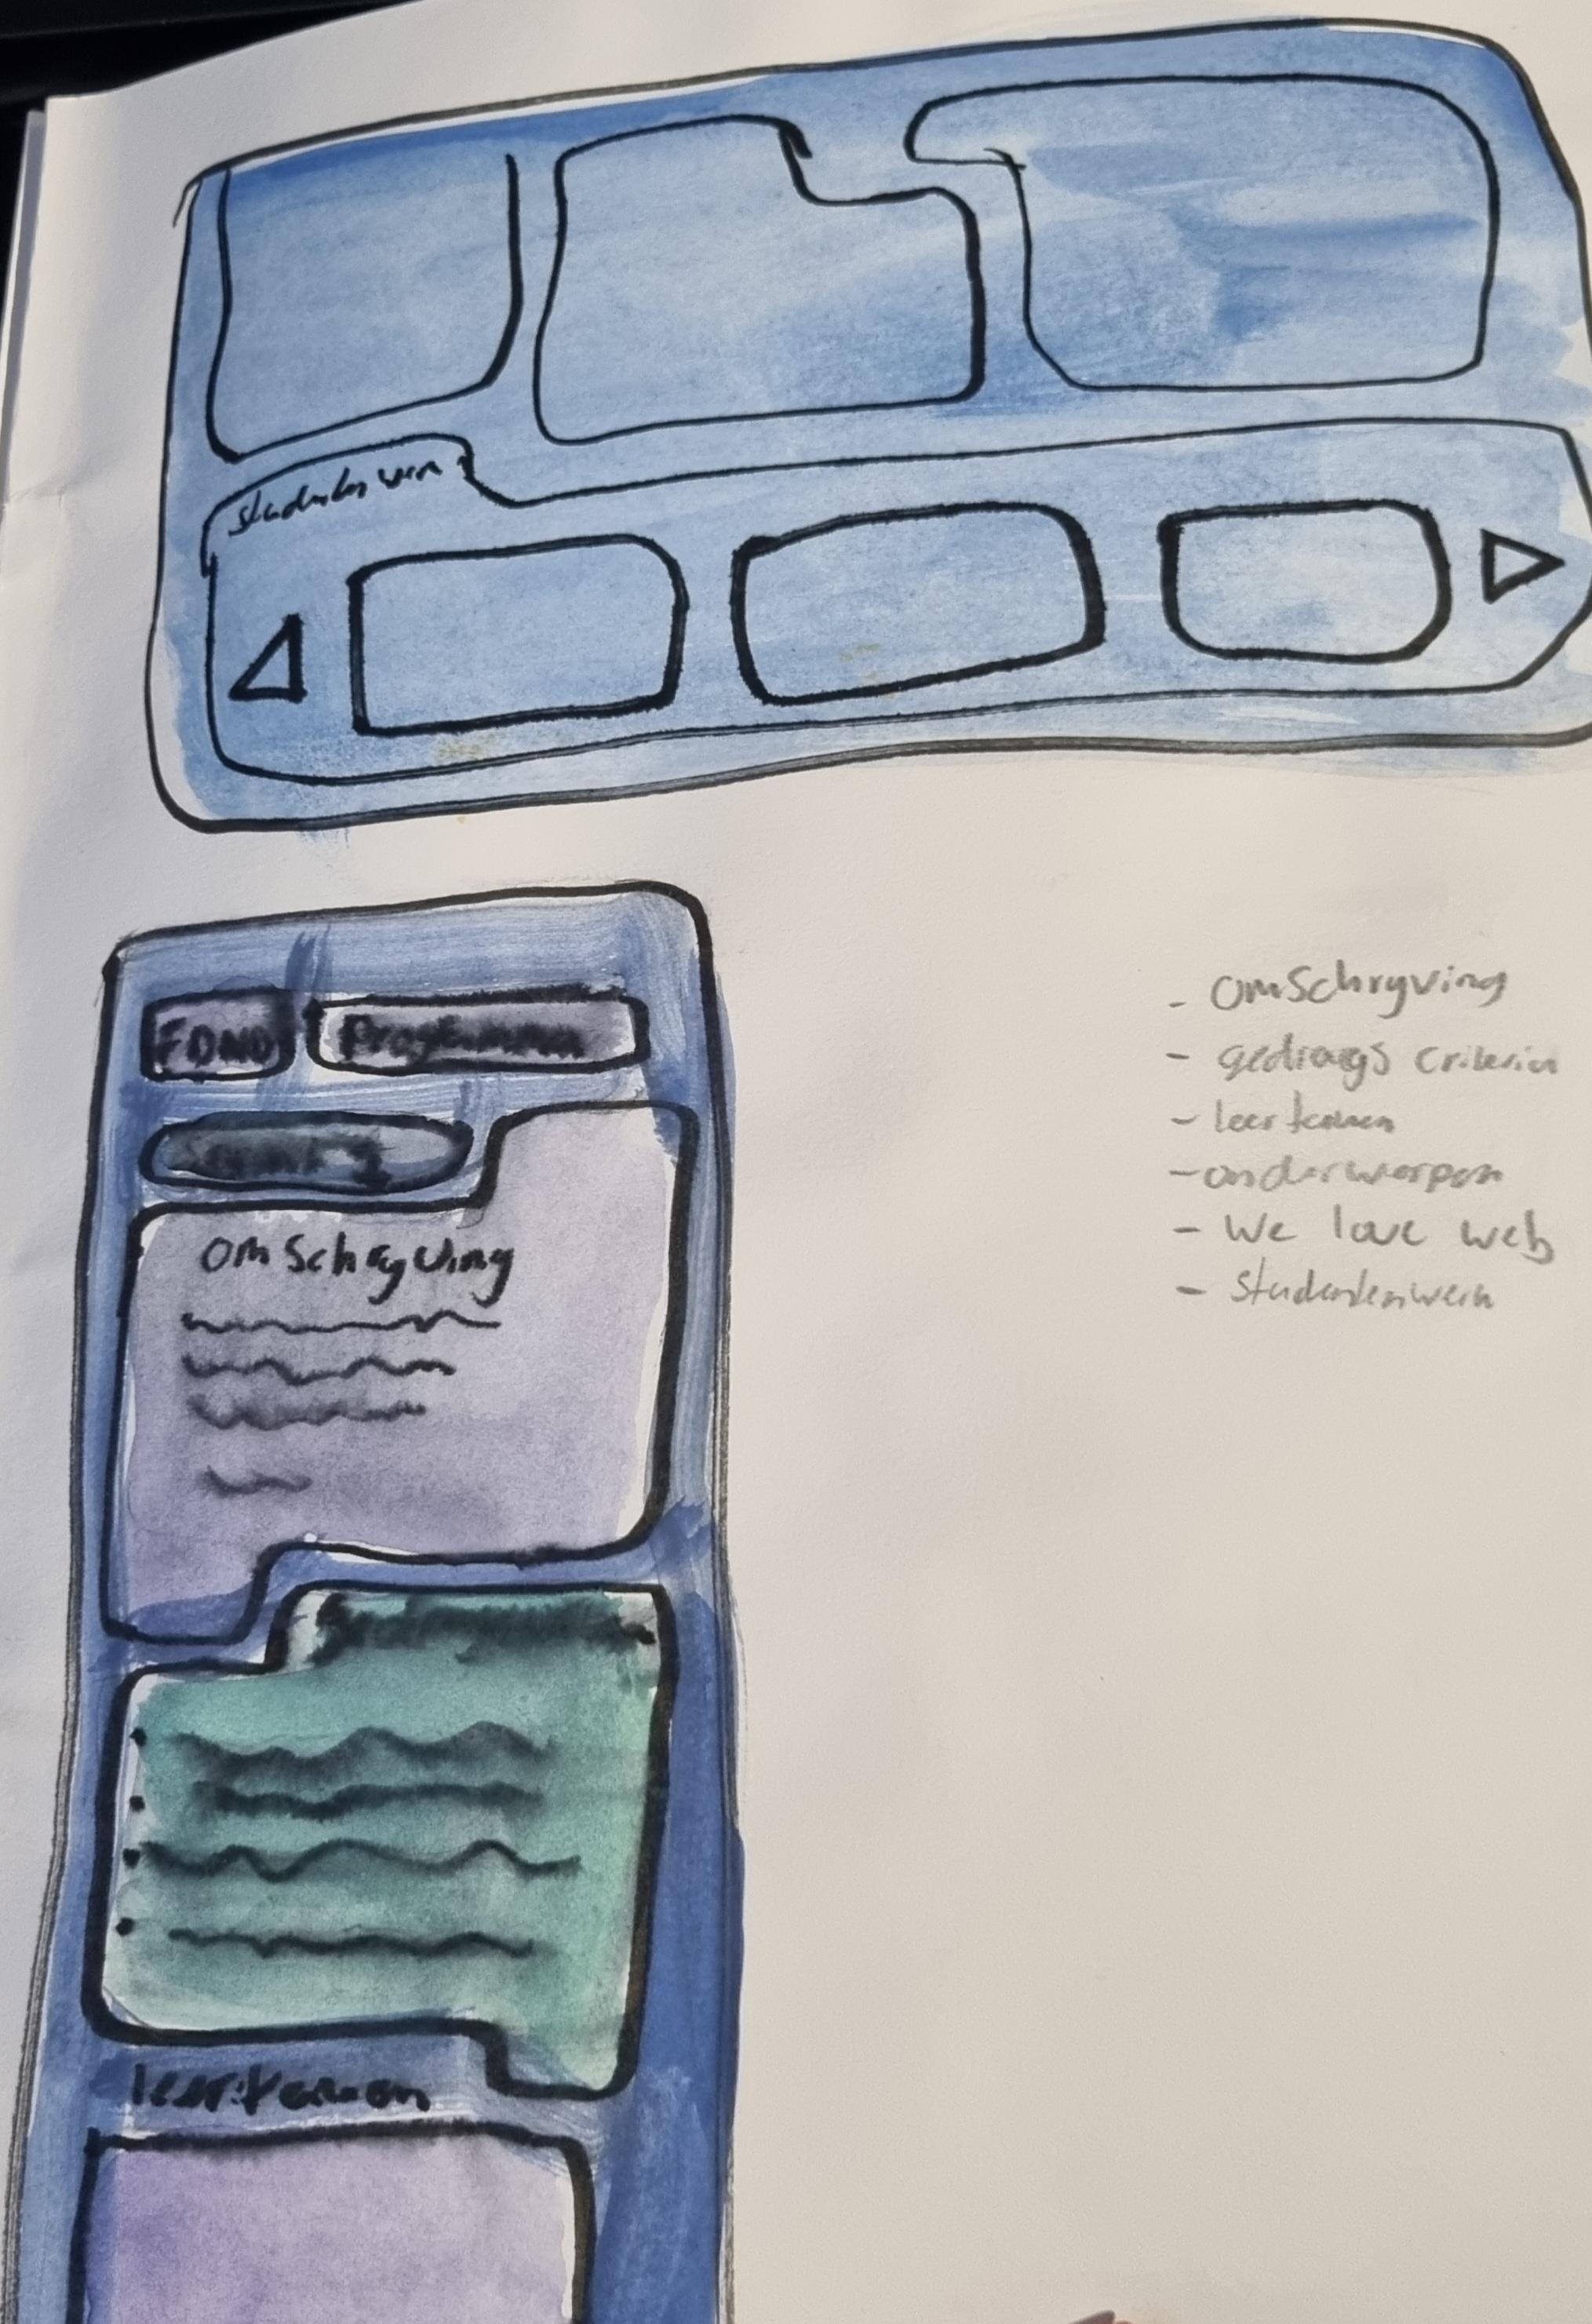 studentenwerk
FDND
Programma
Sprint 1
omschryving
leeritemen
- omschryving
- gedrags criteria
- leer itemen
- onderwerpen
- We love web
- studentenwerk